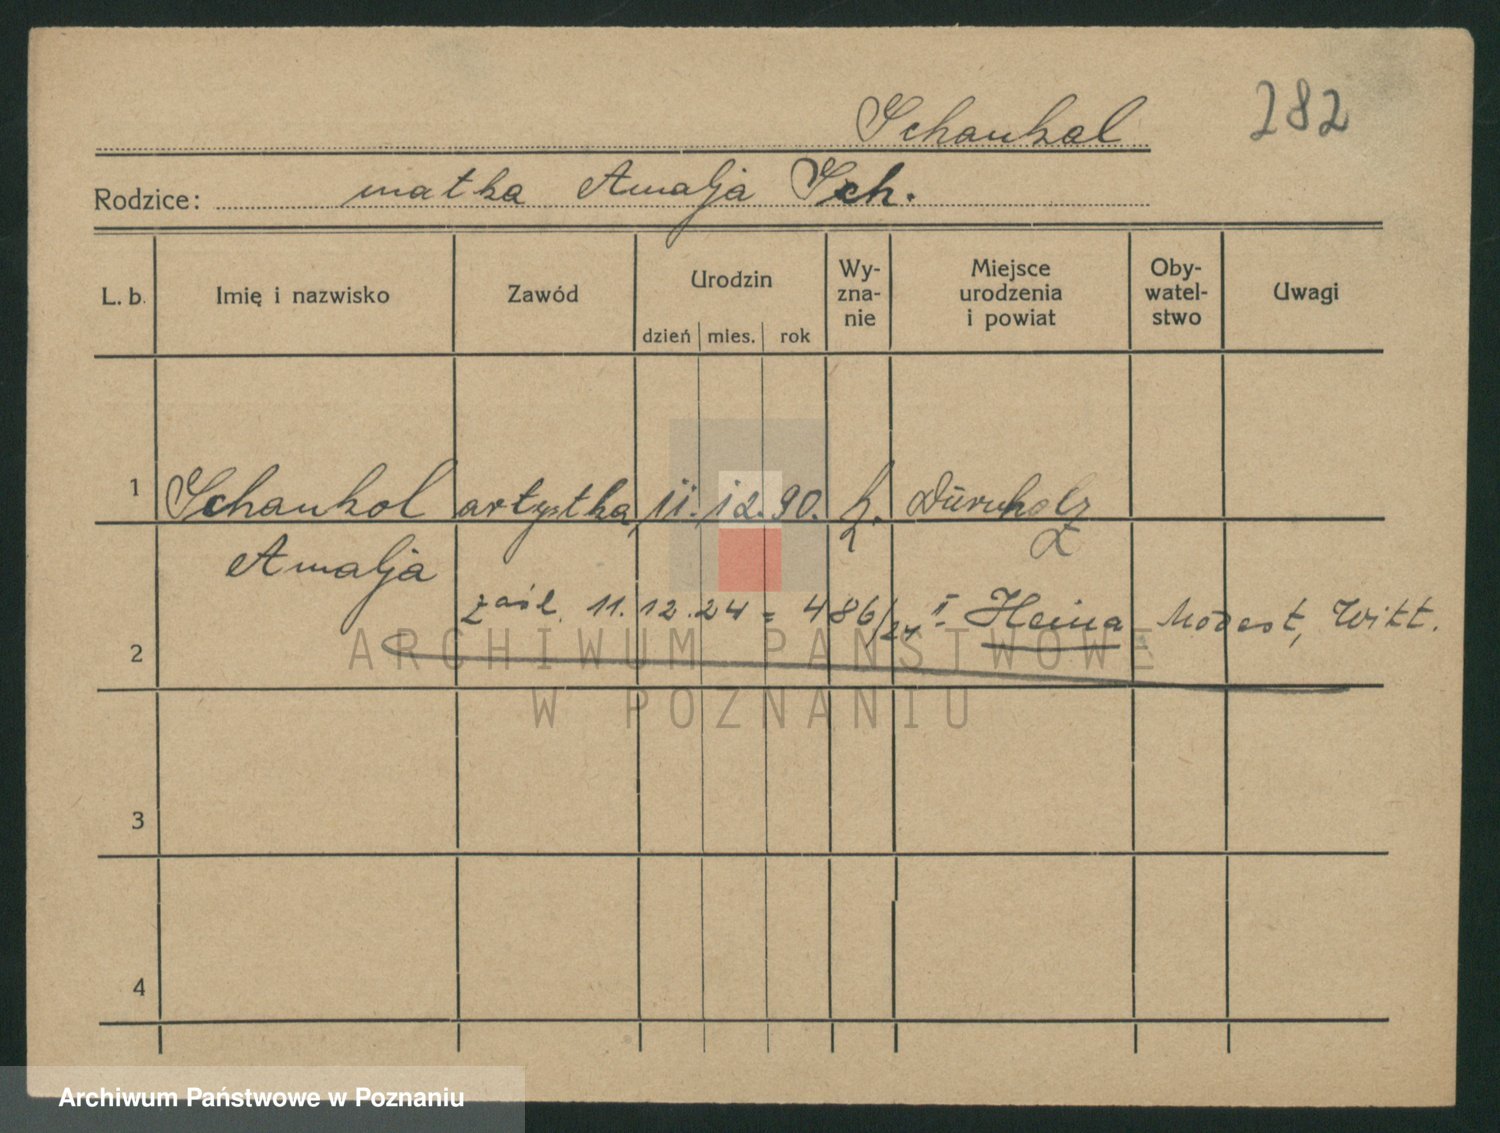 282
Schankal
Rodzice: matka Amalja Sch.
L. b. Imię i nazwisko Zawód Urodzin dzień mies. rok Wy-zna-nie Miejsce urodzenia i powiat Oby-watel-stwo Uwagi
1 Schankol artystka 11. 12. 90. k. Dürnholz
Amalja
zaśl. 11.12.24 = 486/24 I Heina Modest, Witt.
2
3
4
ARCHIWUM PAŃSTWOWE
W POZNANIU
Archiwum Państwowe w Poznaniu